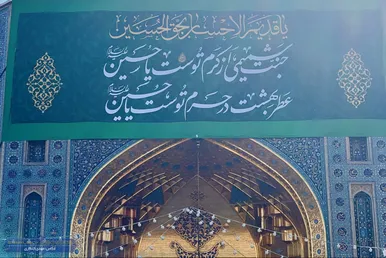 یا قدیم الاحسان بحق الحسین
جنت نسیمی از کرم توست یا حسین
عطر بهشت در حرم توست یا حسین